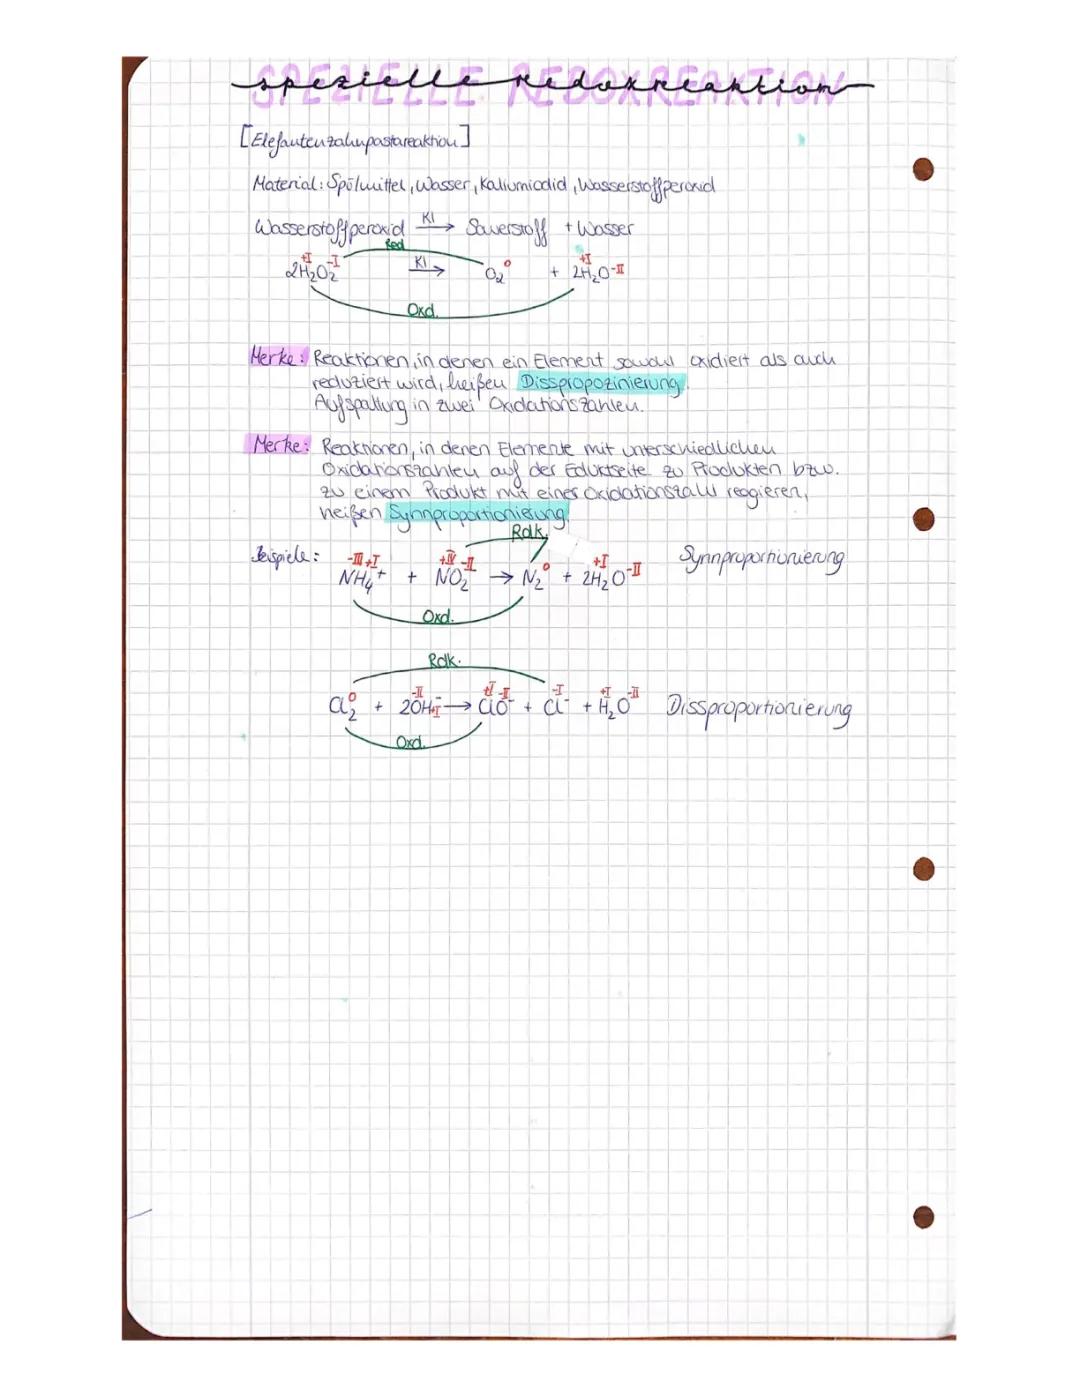 SPEZIELLE REDOXREAKTION
spezielle redoxreaktion
[Elefantenzahnpastareaktion]
Material: Spülmittel, Wasser, Kaliumiodid, Wasserstoffperoxid
Wasserstoffperoxid KI → Sauerstoff + Wasser
Red
+I -I KI +I
2H₂O₂ → O₂⁰ + 2H₂O⁻ᴵᴵ
Oxd.
Merke: Reaktionen, in denen ein Element sowohl oxidiert als auch
reduziert wird, heißen Disspropozinierung.
Aufspaltung in zwei Oxidationszahlen.
Merke: Reaktionen, in denen Elemente mit unterschiedlichen
Oxidationszahlen auf der Eduktseite zu Produkten bzw.
zu einem Produkt mit einer Oxidationszahl reagieren,
heißen Synnproportionierung.
Rdk.
Beispiele: -III +I +IV -II +I Synnproportionierung
NH₄⁺ + NO₂⁻ → N₂⁰ + 2H₂O⁻ᴵᴵ
Oxd.
Rdk.
-II +I -II -I +I -II
Cl₂⁰ + 2OH⁻+I → ClO⁻ + Cl⁻ + H₂O Dissproportionierung
Oxd.